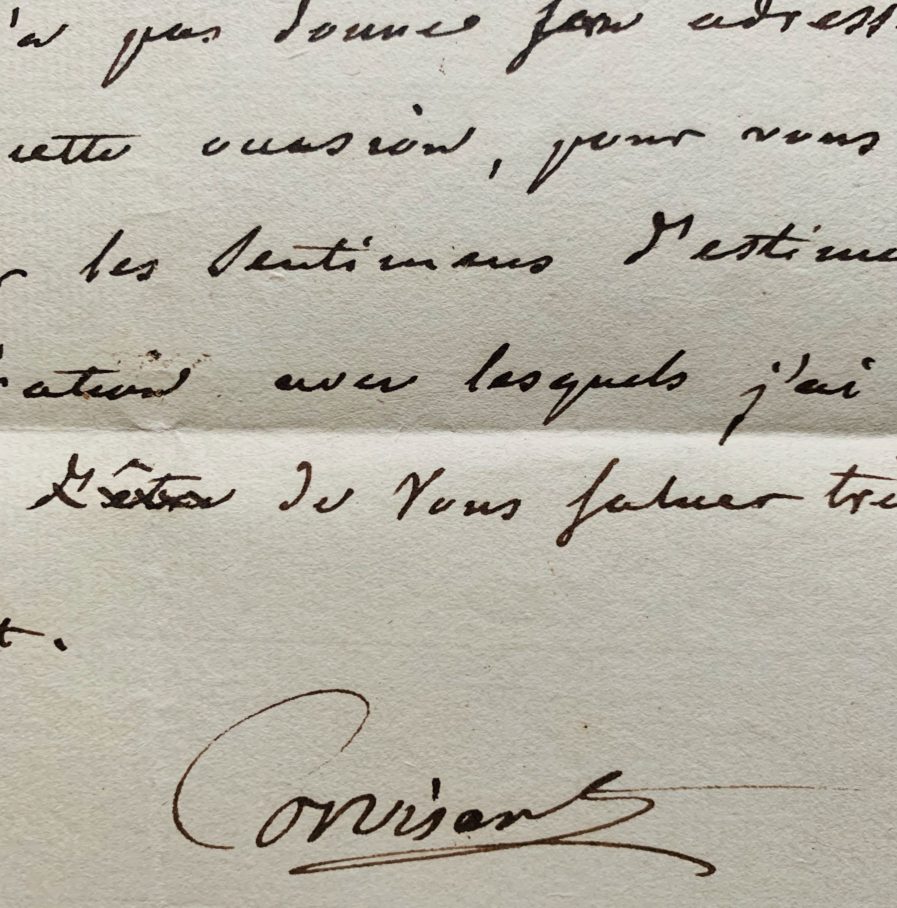 'a pas donné son adress
cette occasion, pour vous
les sentimens d'estime
ation avec lesquels j'ai
d'être de vous saluer trè
t.
Corvisart